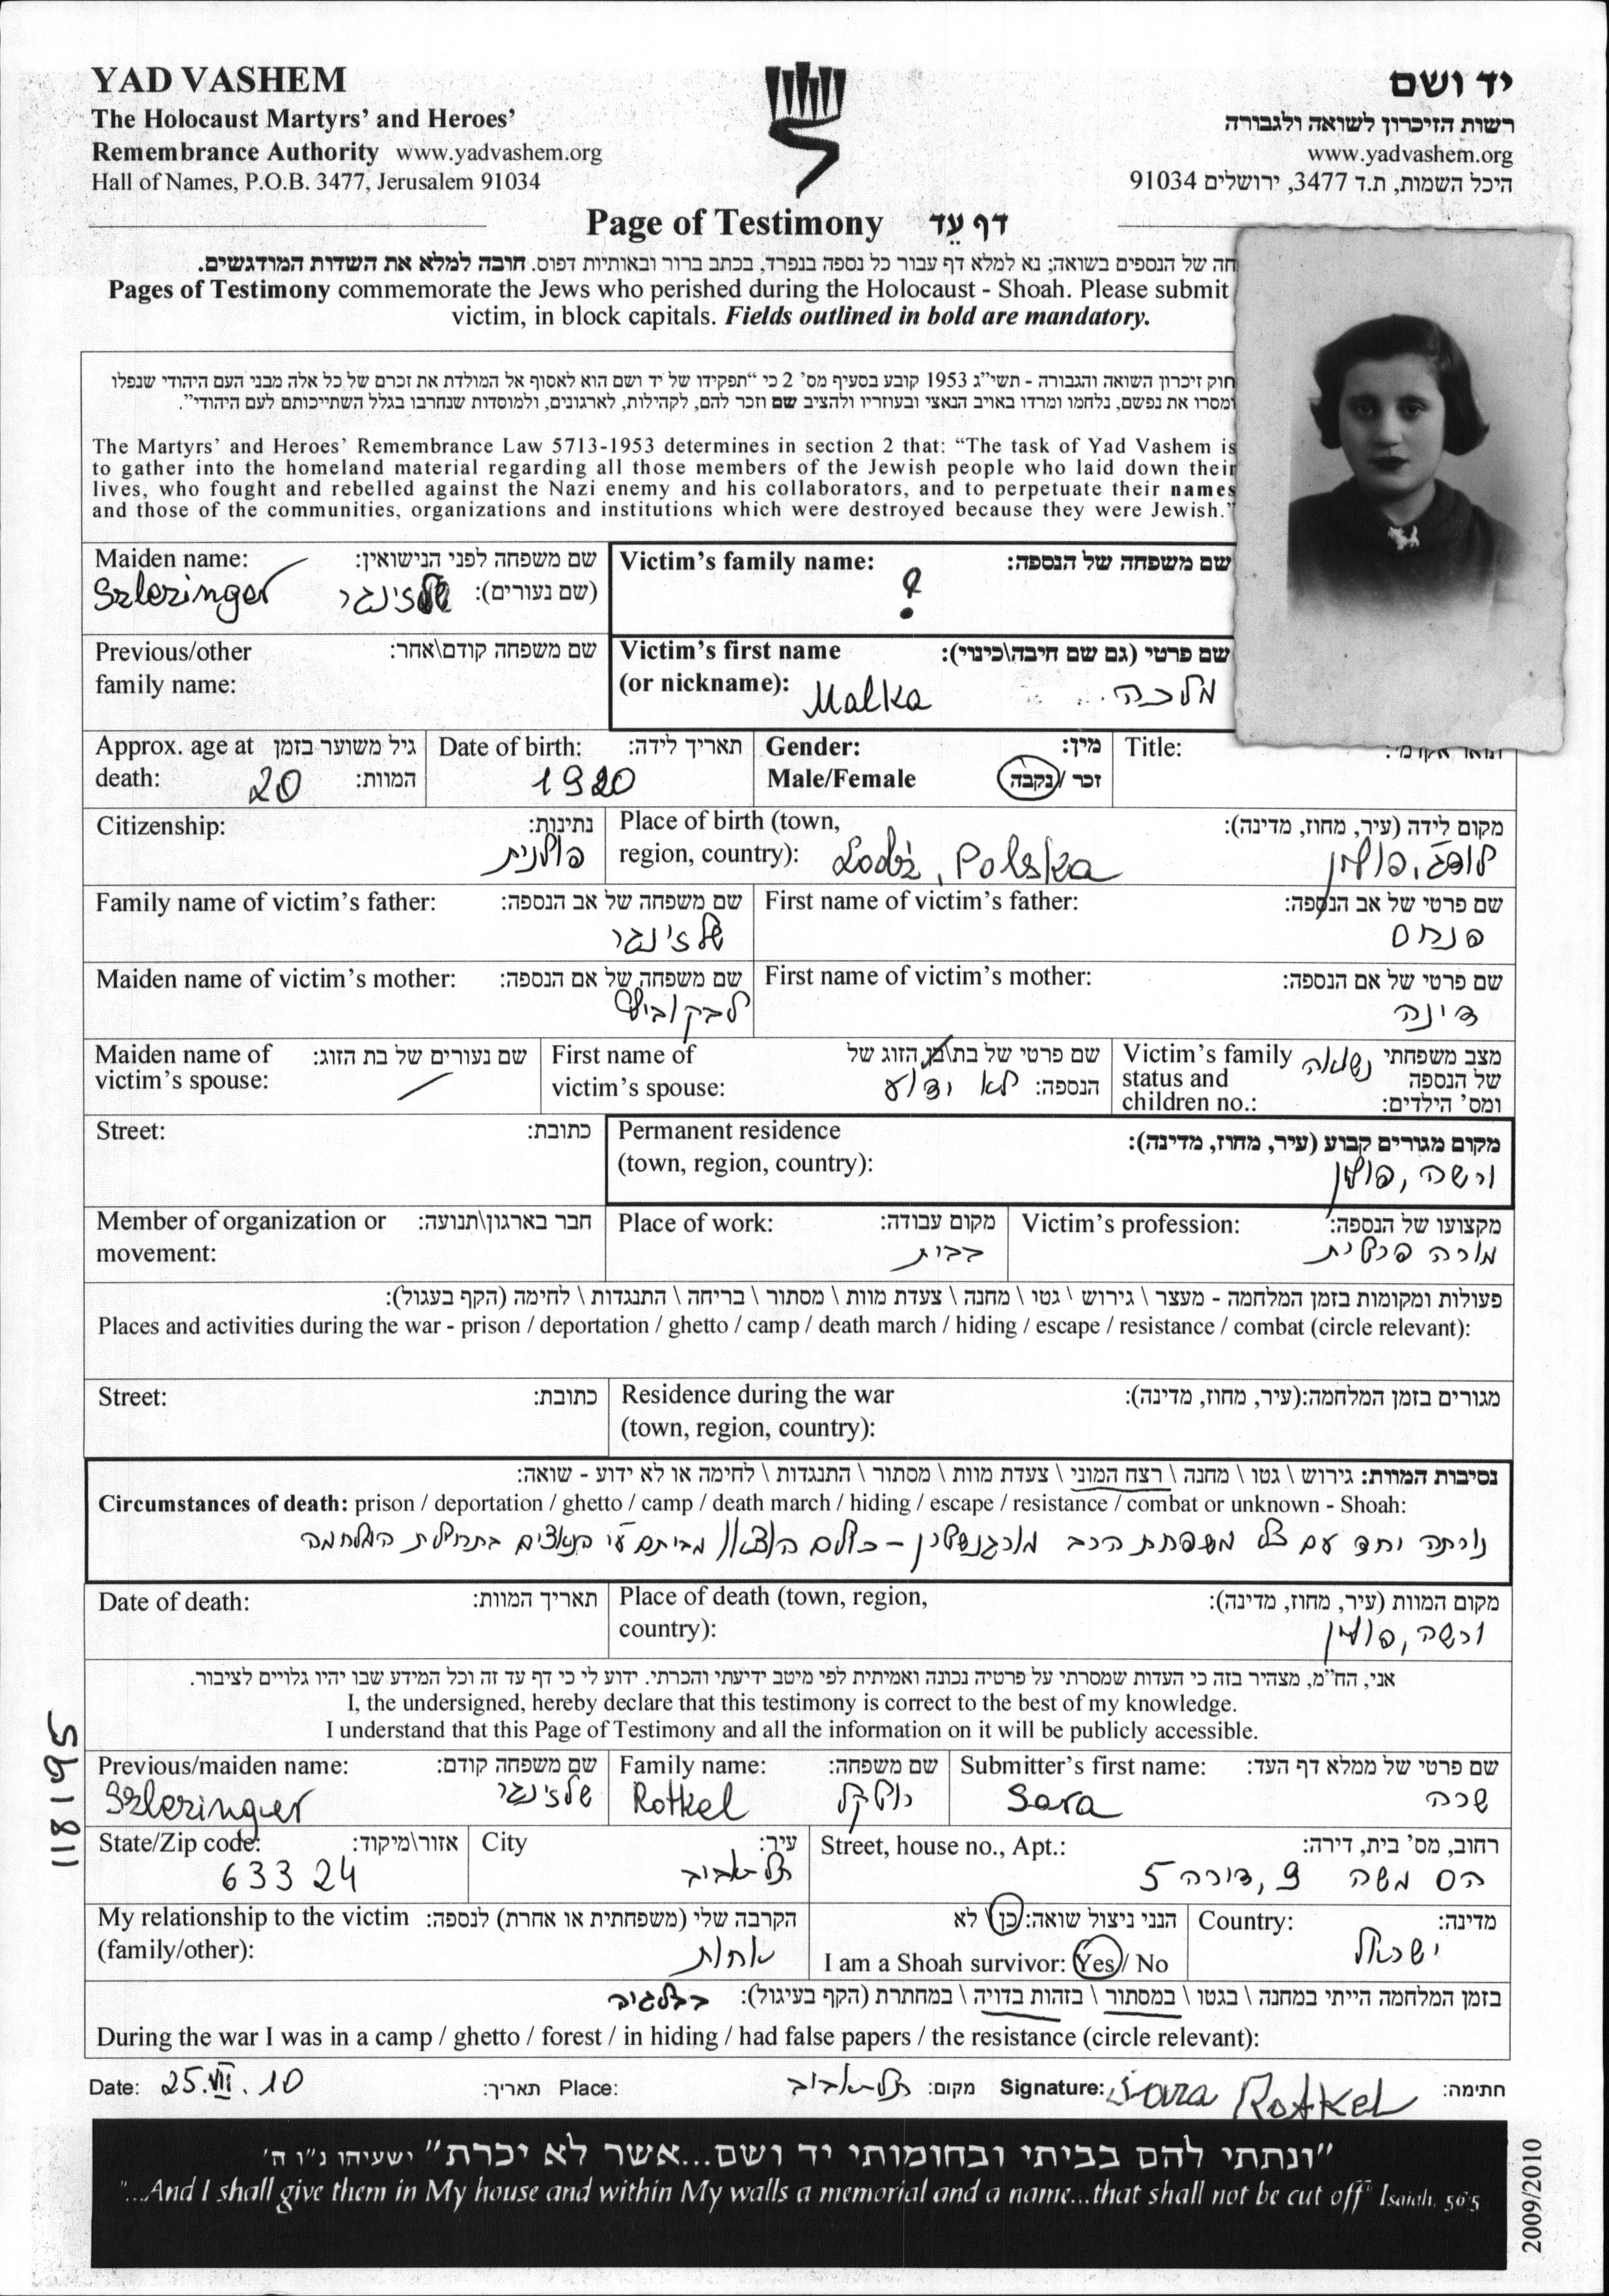 YAD VASHEM
The Holocaust Martyrs' and Heroes'
Remembrance Authority www.yadvashem.org
Hall of Names, P.O.B. 3477, Jerusalem 91034
יד ושם
רשות הזיכרון לשואה ולגבורה
www.yadvashem.org
היכל השמות, ת.ד 3477, ירושלים 91034
Page of Testimony דף עֵד
חה של הנספים בשואה; נא למלא דף עבור כל נספה בנפרד, בכתב ברור ובאותיות דפוס. חובה למלא את השדות המודגשים.
Pages of Testimony commemorate the Jews who perished during the Holocaust - Shoah. Please submit
victim, in block capitals. Fields outlined in bold are mandatory.
חוק זיכרון השואה והגבורה - תשי"ג 1953 קובע בסעיף מס' 2 כי "תפקידו של יד ושם הוא לאסוף אל המולדת את זכרם של כל אלה מבני העם היהודי שנפלו
ומסרו את נפשם, נלחמו ומרדו באויב הנאצי ובעוזריו ולהציב שם וזכר להם, לקהילות, לארגונים, ולמוסדות שנחרבו בגלל השתייכותם לעם היהודי".
The Martyrs' and Heroes' Remembrance Law 5713-1953 determines in section 2 that: "The task of Yad Vashem is
to gather into the homeland material regarding all those members of the Jewish people who laid down their
lives, who fought and rebelled against the Nazi enemy and his collaborators, and to perpetuate their names
and those of the communities, organizations and institutions which were destroyed because they were Jewish."
Maiden name: שם משפחה לפני הנישואין:
(שם נעורים):
Szlezinger שלזינגר
Victim's family name: שם משפחה של הנספה:
?
Previous/other שם משפחה קודם\אחר:
family name:
Victim's first name שם פרטי (גם שם חיבה\כינוי):
(or nickname): Malka מלכה
Approx. age at גיל משוער בזמן
death: 20 המוות:
Date of birth: תאריך לידה:
1920
Gender: מין:
Male/Female זכר / נקבה
Title:
Citizenship: נתינות:
פולנית
Place of birth (town, מקום לידה (עיר, מחוז, מדינה):
region, country): Lodź, Polska לודג', פולין
Family name of victim's father: שם משפחה של אב הנספה:
שלזינגר
First name of victim's father: שם פרטי של אב הנספה:
פנחס
Maiden name of victim's mother: שם משפחה של אם הנספה:
לבקוביץ
First name of victim's mother: שם פרטי של אם הנספה:
דינה
Maiden name of שם נעורים של בת הזוג:
victim's spouse:
First name of שם פרטי של בת\בן הזוג של
victim's spouse: הנספה: לא ידוע
Victim's family מצב משפחתי נשואה
status and של הנספה
children no.: ומס' הילדים:
Street: כתובת:
Permanent residence מקום מגורים קבוע (עיר, מחוז, מדינה):
(town, region, country): ורשה, פולין
Member of organization or חבר בארגון\תנועה:
movement:
Place of work: מקום עבודה:
בבית
Victim's profession: מקצועו של הנספה:
מורה פרטית
פעולות ומקומות בזמן המלחמה - מעצר \ גירוש \ גטו \ מחנה \ צעדת מוות \ מסתור \ בריחה \ התנגדות \ לחימה (הקף בעגול):
Places and activities during the war - prison / deportation / ghetto / camp / death march / hiding / escape / resistance / combat (circle relevant):
Street: כתובת:
Residence during the war מגורים בזמן המלחמה:(עיר, מחוז, מדינה):
(town, region, country):
נסיבות המוות: גירוש \ גטו \ מחנה \ רצח המוני \ צעדת מוות \ מסתור \ התנגדות \ לחימה או לא ידוע - שואה:
Circumstances of death: prison / deportation / ghetto / camp / death march / hiding / escape / resistance / combat or unknown - Shoah:
נורתה יחד עם כל משפחת הרב מורגנשטרן - כולם הוצאו מביתם ע"י הנאצים בתחילת המלחמה
Date of death: תאריך המוות:
Place of death (town, region, מקום המוות (עיר, מחוז, מדינה):
country): ורשה, פולין
אני, הח"מ, מצהיר בזה כי העדות שמסרתי על פרטיה נכונה ואמיתית לפי מיטב ידיעתי והכרתי. ידוע לי כי דף עד זה וכל המידע שבו יהיו גלויים לציבור.
I, the undersigned, hereby declare that this testimony is correct to the best of my knowledge.
I understand that this Page of Testimony and all the information on it will be publicly accessible.
Previous/maiden name: שם משפחה קודם:
Szlezinger שלזינגר
Family name: שם משפחה:
Rotkel רוטקל
Submitter's first name: שם פרטי של ממלא דף העד:
Sara שרה
State/Zip code: אזור\מיקוד:
63324
City עיר:
תל-אביב
Street, house no., Apt.: רחוב, מס' בית, דירה:
הס משה 9, דירה 5
My relationship to the victim הקרבה שלי (משפחתית או אחרת) לנספה:
(family/other): אחות
הנני ניצול שואה: כן \ לא
I am a Shoah survivor: Yes / No
Country: מדינה:
ישראל
בזמן המלחמה הייתי במחנה \ בגטו \ במסתור \ בזהות בדויה \ במחתרת (הקף בעיגול): בבלגיה
During the war I was in a camp / ghetto / forest / in hiding / had false papers / the resistance (circle relevant):
Date: 25.VII.10 תאריך: Place: תל-אביב מקום: Signature: Sara Rotkel חתימה:
"ונתתי להם בביתי ובחומותי יד ושם...אשר לא יכרת" ישעיהו נ"ו ה'
"...And I shall give them in My house and within My walls a memorial and a name...that shall not be cut off" Isaiah, 56:5
118195
2009/2010